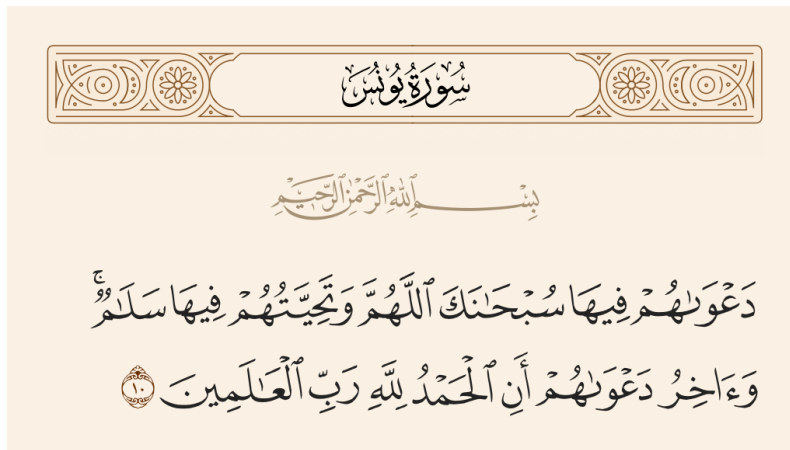 سُورَةُ يُونُسَ
بِسْمِ ٱللَّهِ ٱلرَّحْمَٰنِ ٱلرَّحِيمِ
دَعْوَىٰهُمْ فِيهَا سُبْحَٰنَكَ ٱللَّهُمَّ وَتَحِيَّتُهُمْ فِيهَا سَلَٰمٌۚ
وَءَاخِرُ دَعْوَىٰهُمْ أَنِ ٱلْحَمْدُ لِلَّهِ رَبِّ ٱلْعَٰلَمِينَ ١٠